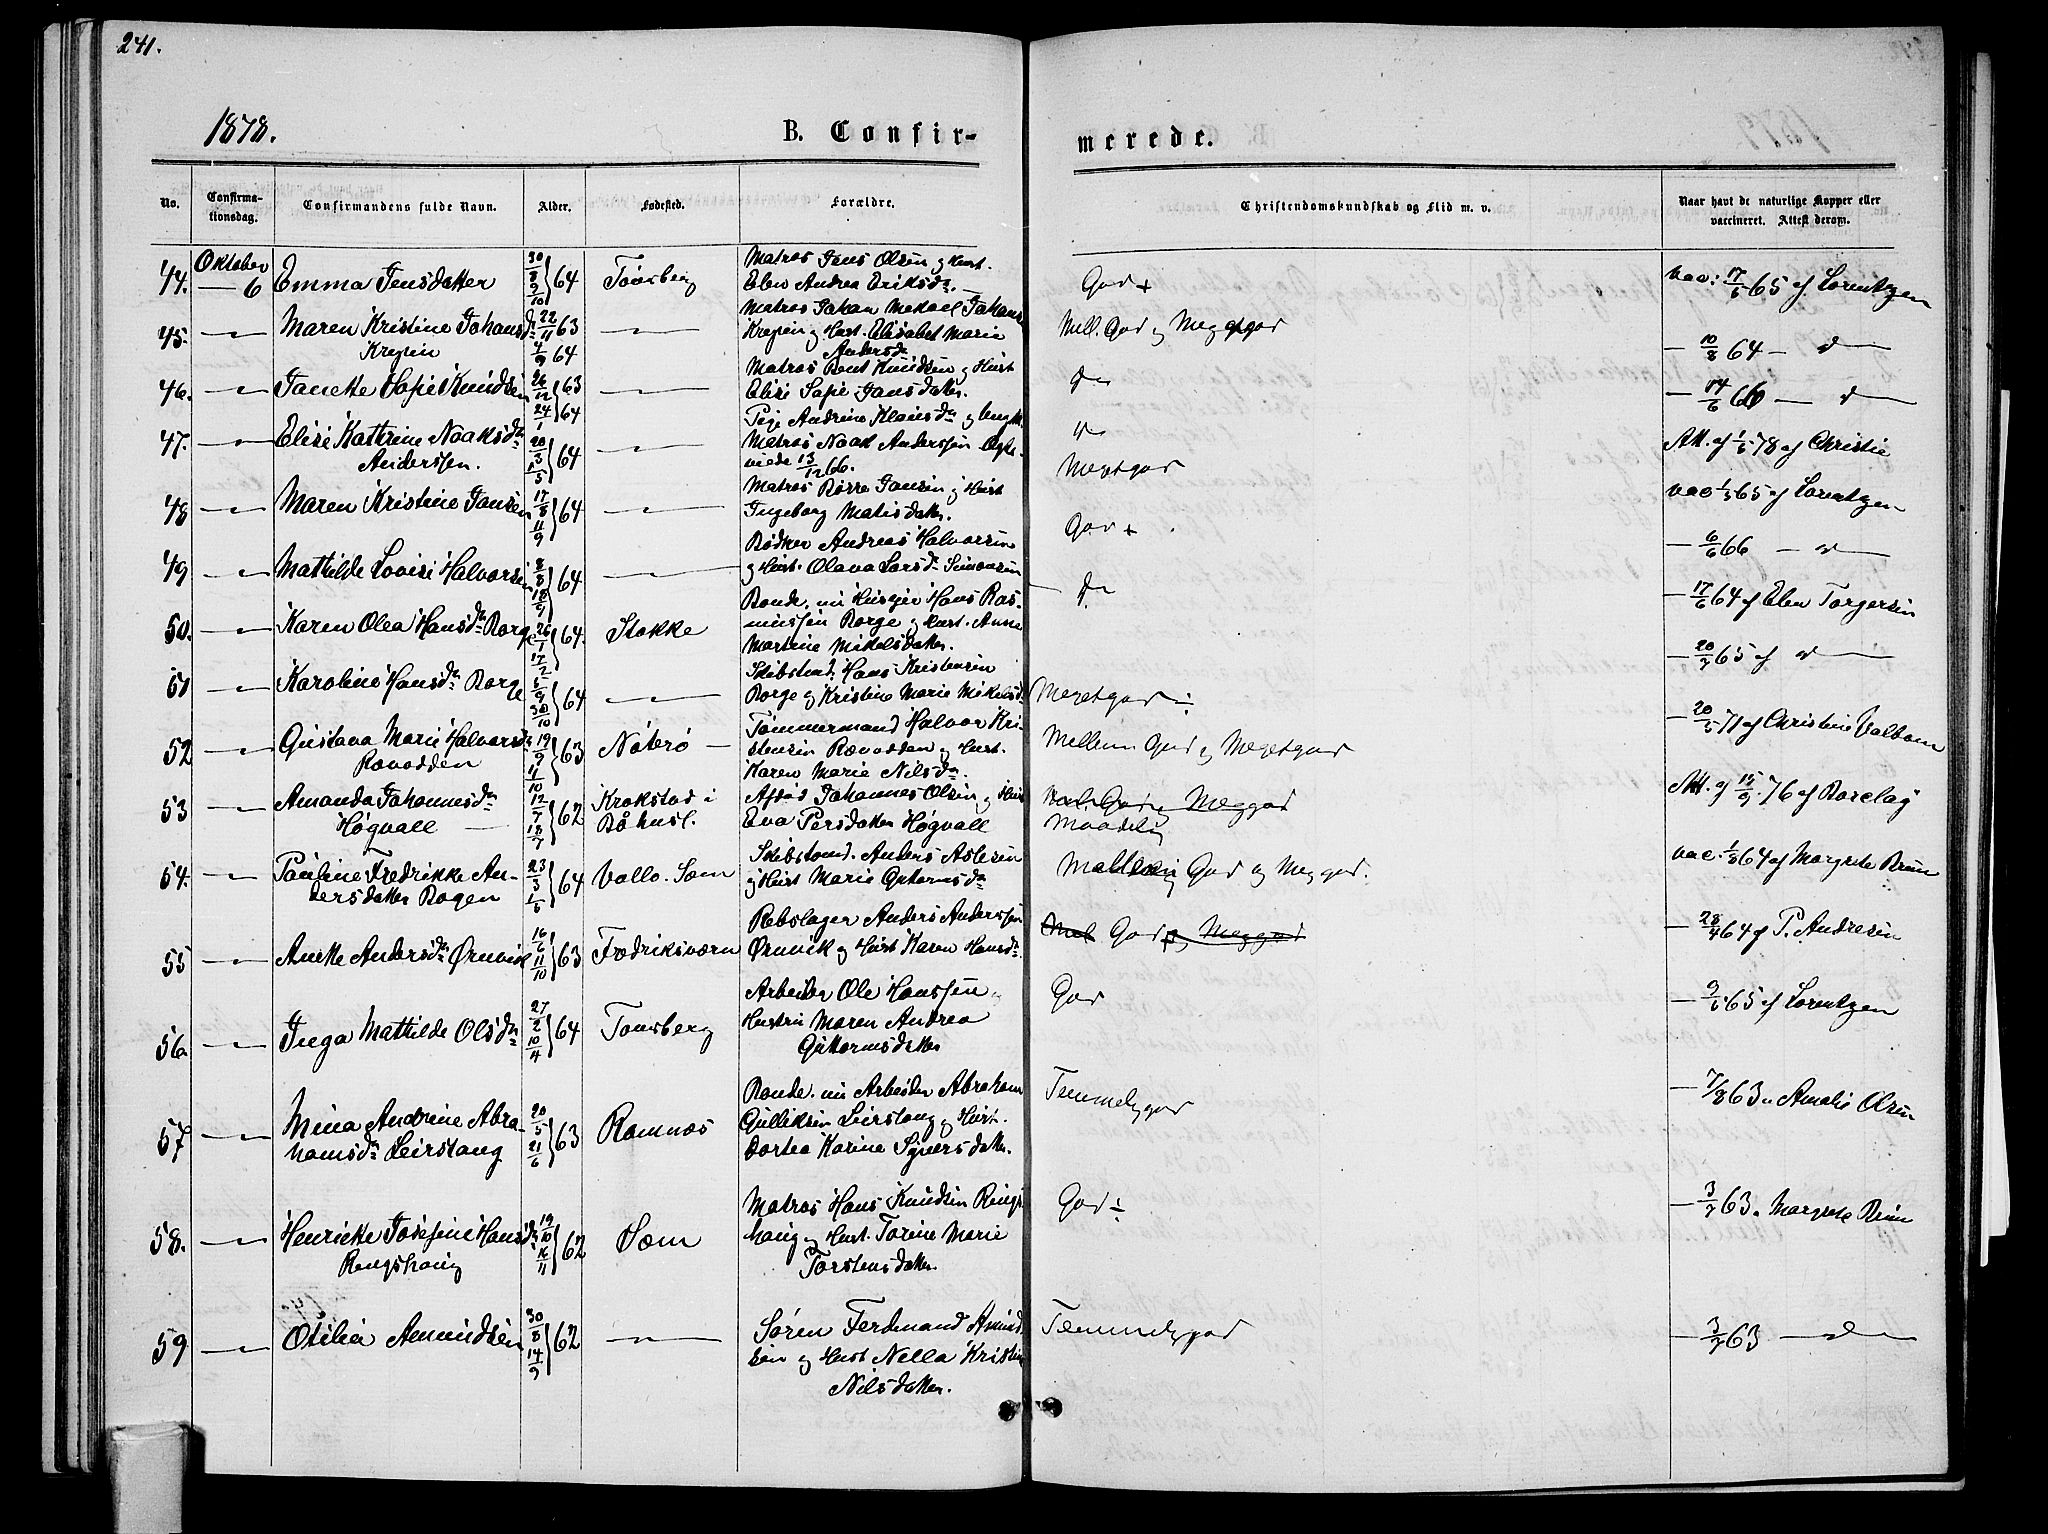 241.
1878.
B. Confir-
merede.
No.
Confirma-
tionsdag.
Confirmandens fulde Navn.
Alder.
Fødested.
Forældre.
Christendomskundskab og Flid m. v.
Naar havt de naturlige Kopper eller
vaccineret. Attest derom.
44. Oktober 6 Emma Jensdatter 30/8 9/10 } 64 Tønsberg
Matros Jens Olsen og Hust.
Elen Andrea Eriksdr. —
God +
vac: 17/6 65 af Lorentzen
45. — Maren Kristine Johansdr. 22/11 63 —
Krepin 4/9 64
Matros Johan Mekael Johans
Krepin og Hust. Elisabet Marie
Andersdr
Mell. God og Megetgod
— 10/8 64 — d —
46. — Janette Sofie Knudsen 26/12 } 63 24/1 } 64 —
Matros Bent Knudsen og Hust
Elise Sofie Jansdatter.
do
— 14/6 66 — d —
47. — Elise Kathrine Noaksdr 20/3 1/5 } 64 —
Anderssen.
Pige Andrine Klausdr og ungk.
Matros Noak Anderssen Egte-
viede 13/12 66.
do
Att. af 1/5 78 af Christie
48 — Maren Kristine Jansen 17/8 11/9 } 64 —
Matros Børre Jansen og Hust
Ingeborg Matisdatter.
Megetgod
vac 1/5 65 af Lorentzen
49 — Mathilde Lovise Halvorsen 8/8 18/9 } 64 —
Bødker Andreas Halvorsen
og Hust. Olava Larsdr Simonsen
God +
— 6/6 66 — d —
50. — Karen Olea Hansdr Borge 26/1 17/2 } 64. Stokke
Bonde. nu Husejer Hans Ras-
mussen Borge og Hust. Anne
Martine Mikelsdatter.
— do
— 17/6 64 af Elen Torgersen
51 — Karoline Hansdr Borge 5/9 30/10 } 64 —
Skibstmd. Hans Kristensen
Borge og Kristine Marie Mikelsd
Megetgod ÷
— 20/7 65 af d —
52 — Gustava Marie Halvorsdr 19/9 1/10 } 63 Nøterø —
Rævodden
Tømmermand Halvor Kri-
stensen Rævodden og Hust.
Karen Marie Nilsdr.
Mellem God og Megetgod
— 20/5 71 af Christine Valbom
53 — Amanda Johannesdr 12/7 18/7 } 62 Krokstad i
Høgvall — Båhusl.
Afdød Johannes Olsen og Hust
Eva Persdatter Høgvall
God og Meggod
Maadelig
Att. af 15/9 76 af Barclay
54. — Pauline Fredrikke An- 23/3 1/5 } 64 Vallø. Sæm
dersdatter Bogen
Skibstømd. Anders Aslesen
og Hust Marie Guttormsdr
God og Meggod.
vac. 1/8 64 af Margrete Bruun
55 — Anette Andersdr Ørnvik 16/6 11/10 } 63 Fredriksværn
Rebslager Anders Anderssen
Ørnvik og Hust Karen Hansdr.
Mel God og Meggod
— 28/4 64 af P. Andresen
56 — Inga Mathilde Olsdr 27/2 10/4 } 64 Tønsberg
Arbeider Ole Hanssen
Hustru Maren Andrea
Guttormsdatter
God
— 9/5 65 af Lorentzen
57 — Mina Andrine Abra- 20/5 21/6 } 63 Ramnæs
hamsdr Leirstang
Bonde. nu Arbeider Abraham
Gulliksen Leirstang og Hust.
Dortea Karine Syversdatter.
Temmeliggod
— 7/8 63 „ Amalie Olsen
58. — Henricke Josefine Hansdr 19/10 16/11 } 62 Sæm
Ringshaug
Matros Hans Knudsen Rings-
haug og Hust. Torine Marie
Torstensdatter.
God ÷
— 3/7 63 „ Margrete Bruun
59 — Otilia Amundsen 30/8 14/9 } 62 —
Søren Ferdinand Amund
sen og Hust Nella Kristin
Nilsdatter.
Temmeliggod
— 3/7 63 — d —